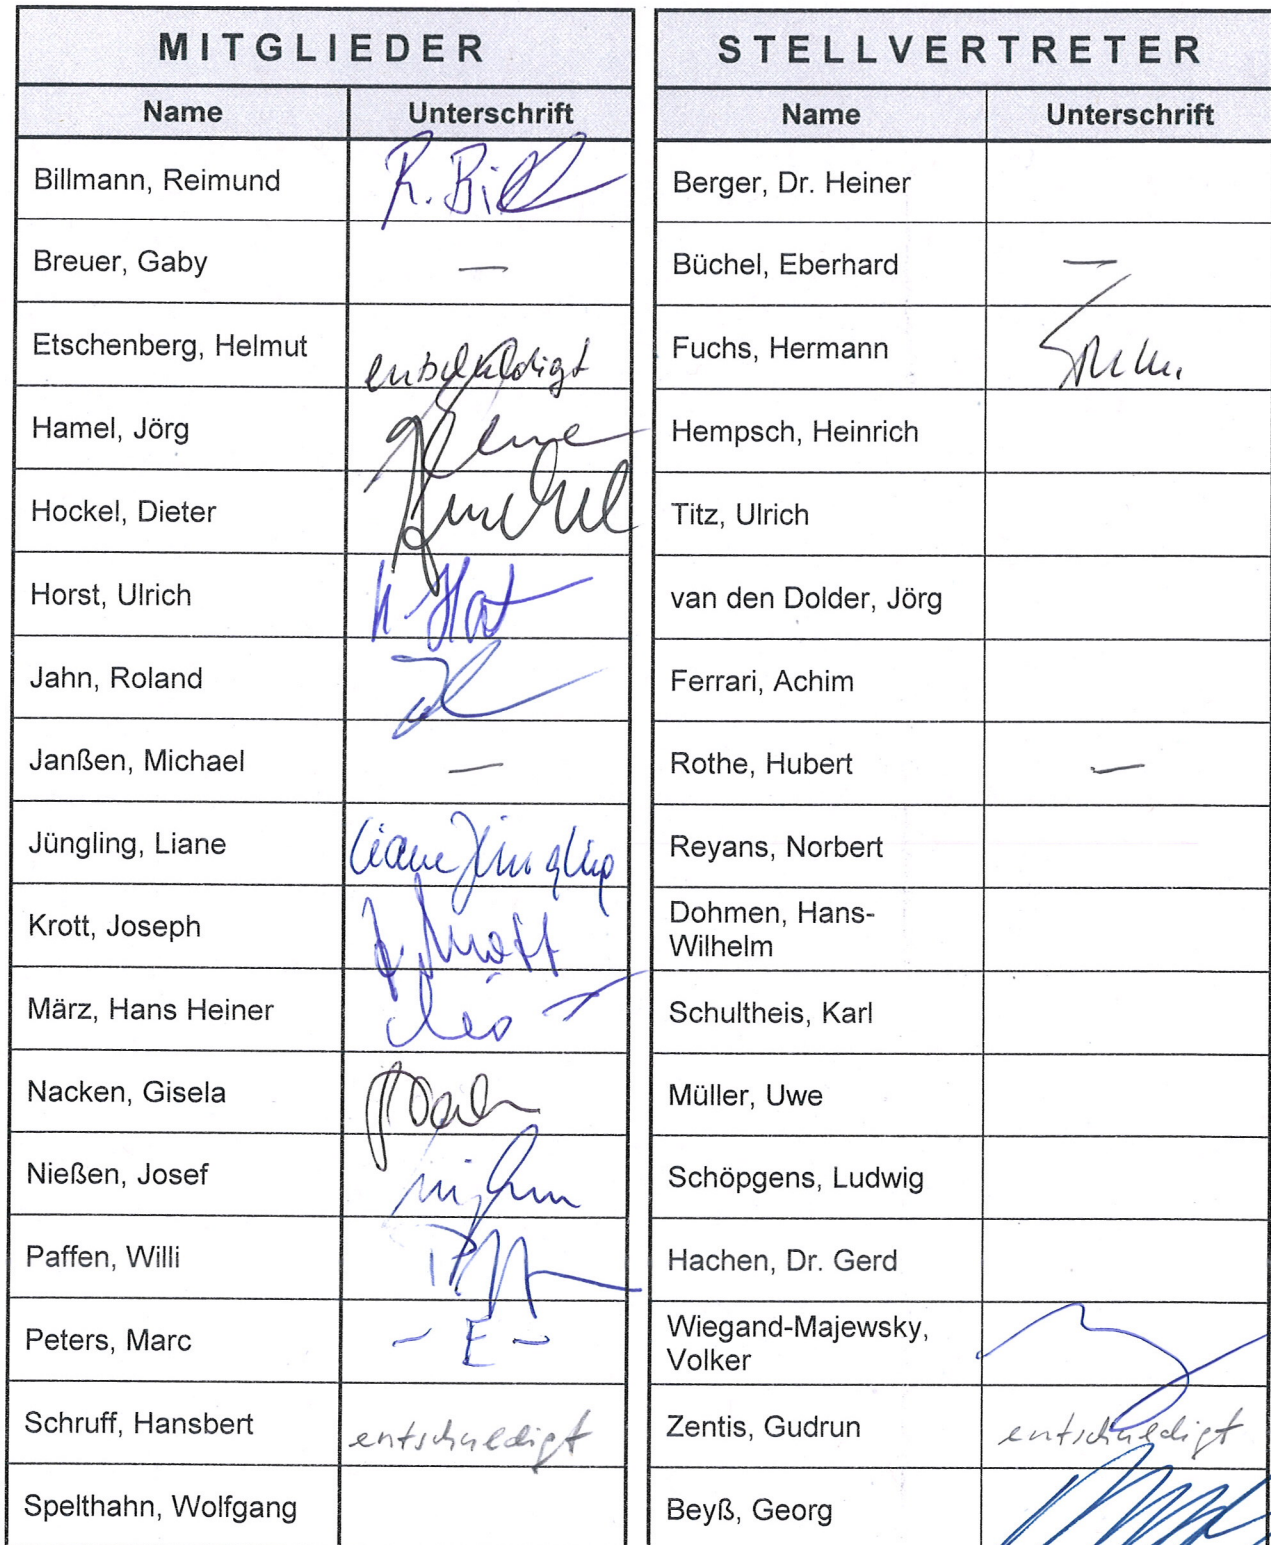 MITGLIEDER
Name Unterschrift
Billmann, Reimund R. Bill
Breuer, Gaby —
Etschenberg, Helmut entschuldigt
Hamel, Jörg
Hockel, Dieter
Horst, Ulrich
Jahn, Roland
Janßen, Michael —
Jüngling, Liane Liane Jüngling
Krott, Joseph J. Krott
März, Hans Heiner
Nacken, Gisela
Nießen, Josef
Paffen, Willi
Peters, Marc - E -
Schruff, Hansbert entschuldigt
Spelthahn, Wolfgang
STELLVERTRETER
Name Unterschrift
Berger, Dr. Heiner
Büchel, Eberhard —
Fuchs, Hermann
Hempsch, Heinrich
Titz, Ulrich
van den Dolder, Jörg
Ferrari, Achim
Rothe, Hubert —
Reyans, Norbert
Dohmen, Hans-
Wilhelm
Schultheis, Karl
Müller, Uwe
Schöpgens, Ludwig
Hachen, Dr. Gerd
Wiegand-Majewsky,
Volker
Zentis, Gudrun entschuldigt
Beyß, Georg